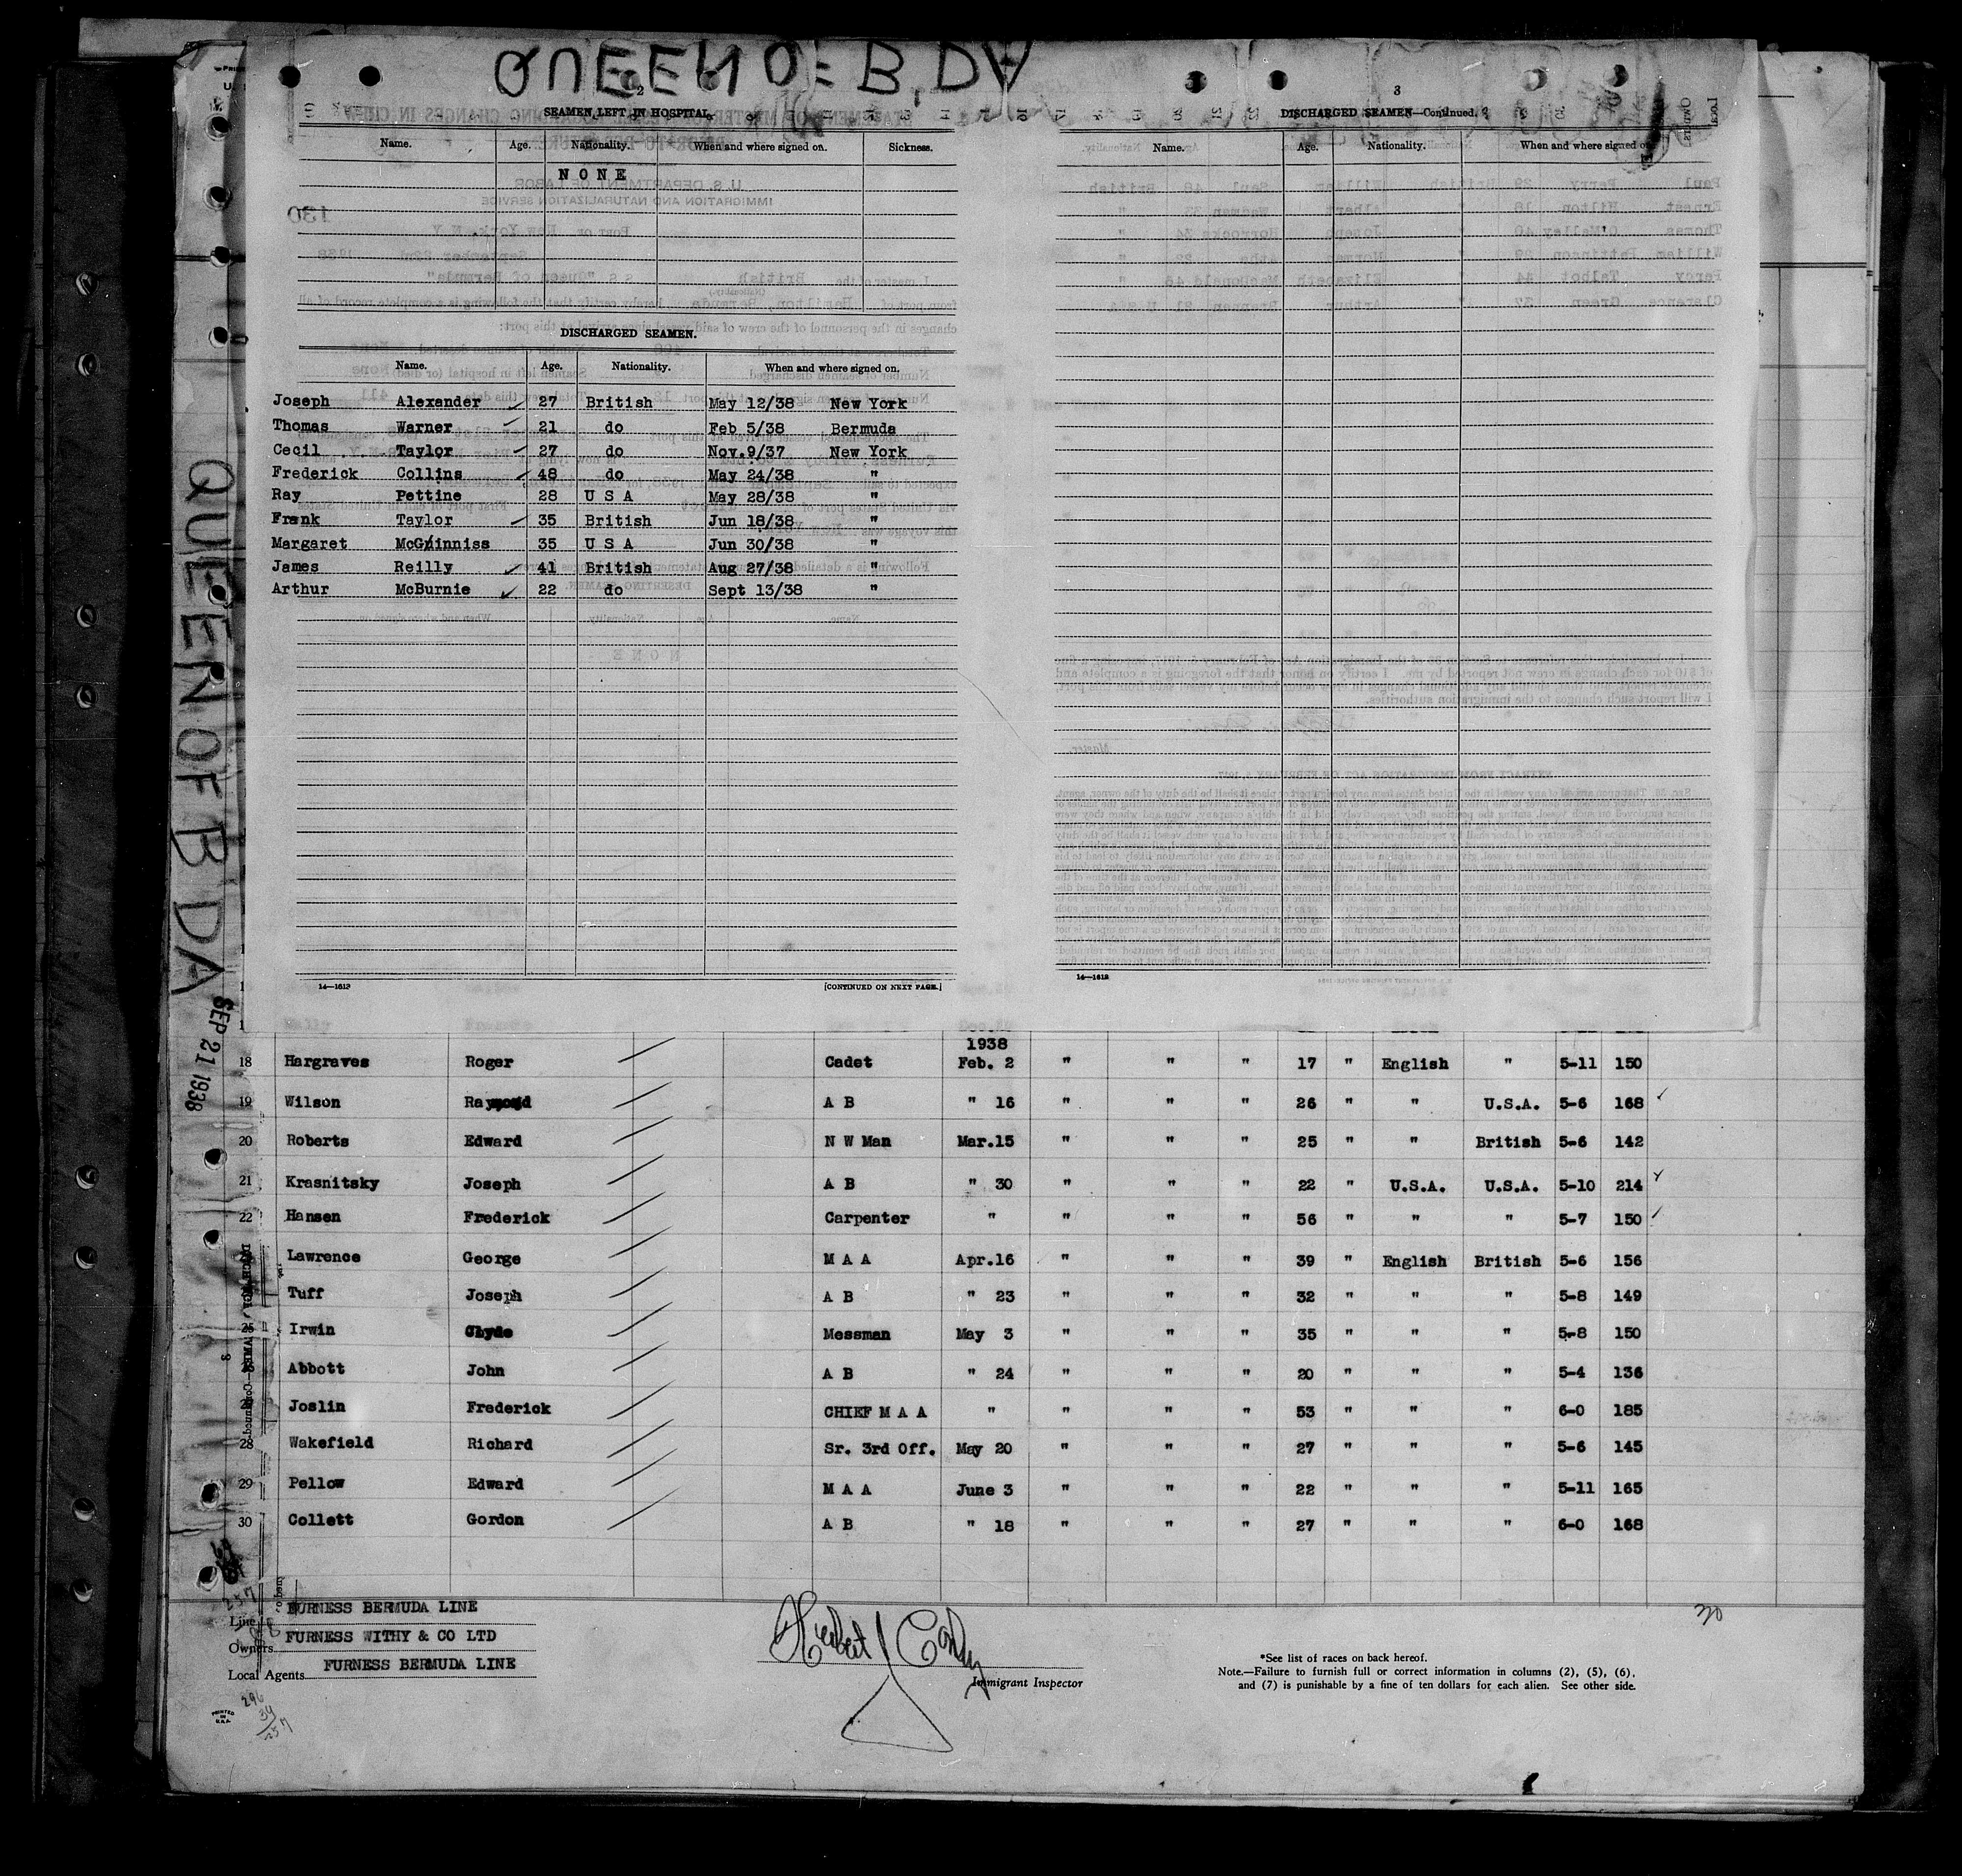 QUEEN OF B,DA
2
SEAMEN LEFT IN HOSPITAL.
Name. Age. Nationality. When and where signed on. Sickness.
N O N E
DISCHARGED SEAMEN.
Name. Age. Nationality. When and where signed on.
Joseph Alexander 27 British May 12/38 New York
Thomas Warner 21 do Feb 5/38 Bermuda
Cecil Taylor 27 do Nov.9/37 New York
Frederick Collins 48 do May 24/38 "
Ray Pettine 28 U S A May 28/38 "
Frank Taylor 35 British Jun 18/38 "
Margaret McGinniss 35 U S A Jun 30/38 "
James Reilly 41 British Aug 27/38 "
Arthur McBurnie 22 do Sept 13/38 "
14—1613 [CONTINUED ON NEXT PAGE.]
3
DISCHARGED SEAMEN—Continued.
Name. Age. Nationality. When and where signed on.
14—1613
QUEEN OF B DA
SEP 21 1938
1938
18 Hargraves Roger Cadet Feb. 2 " " " 17 " English " 5-11 150
19 Wilson Raymond A B " 16 " " " 26 " " U.S.A. 5-6 168
20 Roberts Edward N W Man Mar.15 " " " 25 " " British 5-6 142
21 Krasnitsky Joseph A B " 30 " " " 22 " U.S.A. U.S.A. 5-10 214
22 Hansen Frederick Carpenter " " " " 56 " " " 5-7 150
Lawrence George M A A Apr.16 " " " 39 " English British 5-6 156
Tuff Joseph A B " 23 " " " 32 " " " 5-8 149
25 Irwin Clyde Messman May 3 " " " 35 " " " 5-8 150
Abbott John A B " 24 " " " 20 " " " 5-4 136
Joslin Frederick CHIEF M A A " " " " 53 " " " 6-0 185
28 Wakefield Richard Sr. 3rd Off. May 20 " " " 27 " " " 5-6 145
29 Pellow Edward M A A June 3 " " " 22 " " " 5-11 165
30 Collett Gordon A B " 18 " " " 27 " " " 6-0 168
Line FURNESS BERMUDA LINE
Owners FURNESS WITHY & CO LTD
Local Agents FURNESS BERMUDA LINE
Immigrant Inspector
*See list of races on back hereof.
Note.—Failure to furnish full or correct information in columns (2), (5), (6),
and (7) is punishable by a fine of ten dollars for each alien. See other side.
30
296
34
257
PRINTED
IN
U.S.A.